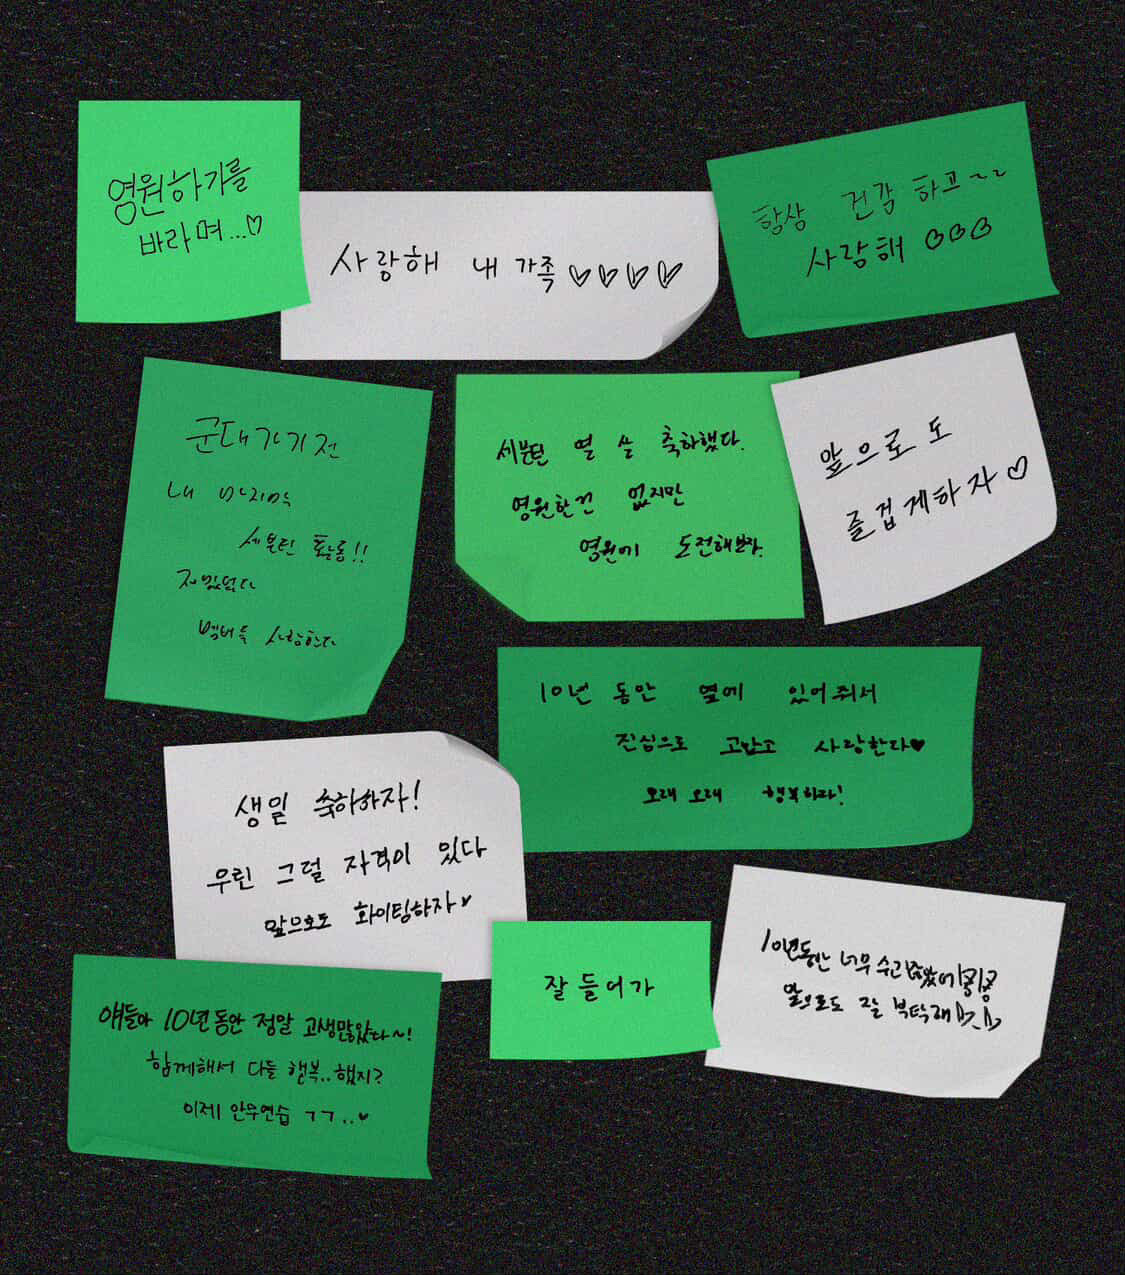 영원하기를
바라며...♡
사랑해 내 가족 ♡♡♡♡
항상 건강 하고~~
사랑해 ♡♡♡
군대가기전
내 마지막
세븐틴 활동!!
재밌었다
멤버들 사랑한다
세븐틴 열 살 축하했다.
영원한건 없지만
영원에 도전해보자.
앞으로도
즐겁게하자♡
10년 동안 옆에 있어줘서
진심으로 고맙고 사랑한다♥
오래 오래 행복하자!
생일 축하하자!
우린 그럴 자격이 있다
앞으로도 화이팅하자♥
잘 들어가
10년동안 너무 수고많았어
앞으로도 잘 부탁해
얘들아 10년동안 정말 고생많았다~!
함께해서 다들 행복..했지?
이제 안무연습 ㄱㄱ..♥